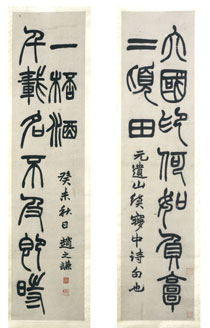 六國印何如負郭
二頃田
元遺山續夢中詩句也
千載名不及即時
一桮酒
癸未秋日 趙之謙